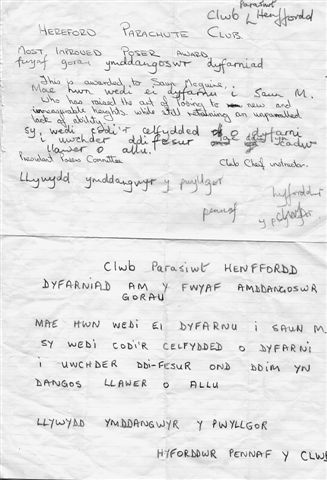 Parasiwt
Clwb Henffordd
HEREFORD PARACHUTE CLUB.
MOST IMPROVED POSER AWARD
fwyaf gorau ymddangoswr dyfarniad
This is awarded to Saun Mcguire,
Mae hwn wedi ei dyfarnu i Saun M.
who has raised the art of Posing to new and
unreachable heights while still retaining an unparalleled
lack of ability.
sy wedi codi'r celfydded o dyfarni
i uwchder ddifesur
llawer o allu.
President Posers Committee
Club Chief instructor.
LLywydd ymddangwyr y pwyllgor
hyfforddwr
pennaf y clwb
Clwb Parasiwt HENFFORDD
DYFARNIAD AM Y FWYAF AMDDANGOSWR
GORAU
MAE HWN WEDI EI DYFARNU I SAUN M.
SY WEDI CODI'R CELFYDDED O DYFARNI
I UWCHDER DDI-FESUR OND DDIM YN
DANGOS LLAWER O ALLU
LLYWYDD YMDDANGWYR Y PWYLLGOR
HYFORDDWR PENNAF Y CLWB